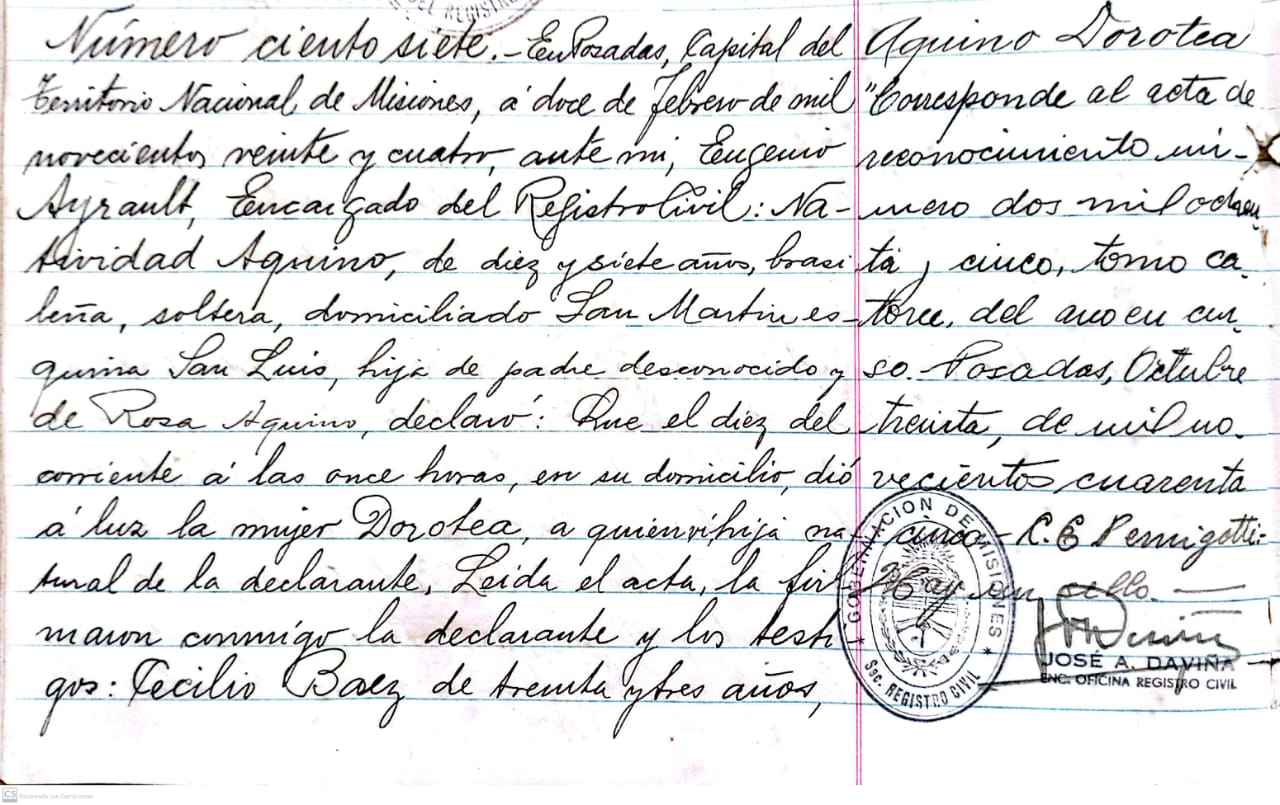 DEL REGISTRO
Número ciento siete.- En Posadas, Capital del
Territorio Nacional de Misiones, á doce de Febrero de mil
novecientos veinte y cuatro, ante mi, Eugenio
Ayrault, Encargado del Registro Civil: Na-
tividad Aquino, de diez y siete años, brasi
leña, soltera, domiciliado San Martin es-
quina San Luis, hija de padre desconocido y
de Rosa Aquino, declaró: Que el diez del
corriente á las once horas, en su domicilio, dió
á luz la mujer Dorotea, a quien ví hija na
tural de la declarante, Leida el acta, la fir
maron conmigo la declarante y los testi
gos: Cecilio Baez de treinta y tres años,
Aquino Dorotea
"Corresponde al acta de
reconocimiento nú-
mero dos mil ochen
ta y cinco, tomo ca.
torce, del ano en cur,
so. Posadas, Octubre
treinta, de mil no.
vecientos cuarenta
cinco- C. E Pernigotti-
Hay un sello. —
GOBERNACION DE MISIONES
Sec. REGISTRO CIVIL
JOSÉ A. DAVIÑA
ENC. OFICINA REGISTRO CIVIL
CS Escaneado con CamScanner